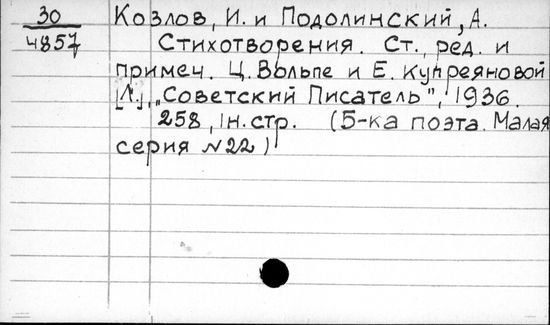 30
4857
Козлов, И. и Подолинский, А.
Стихотворения. Ст., ред. и
примеч. Ц. Вольпе и Е. Купреяновой
[Л.], „Советский Писатель", 1936.
258, 1н. стр. (Б-ка поэта. Малая
серия №22)